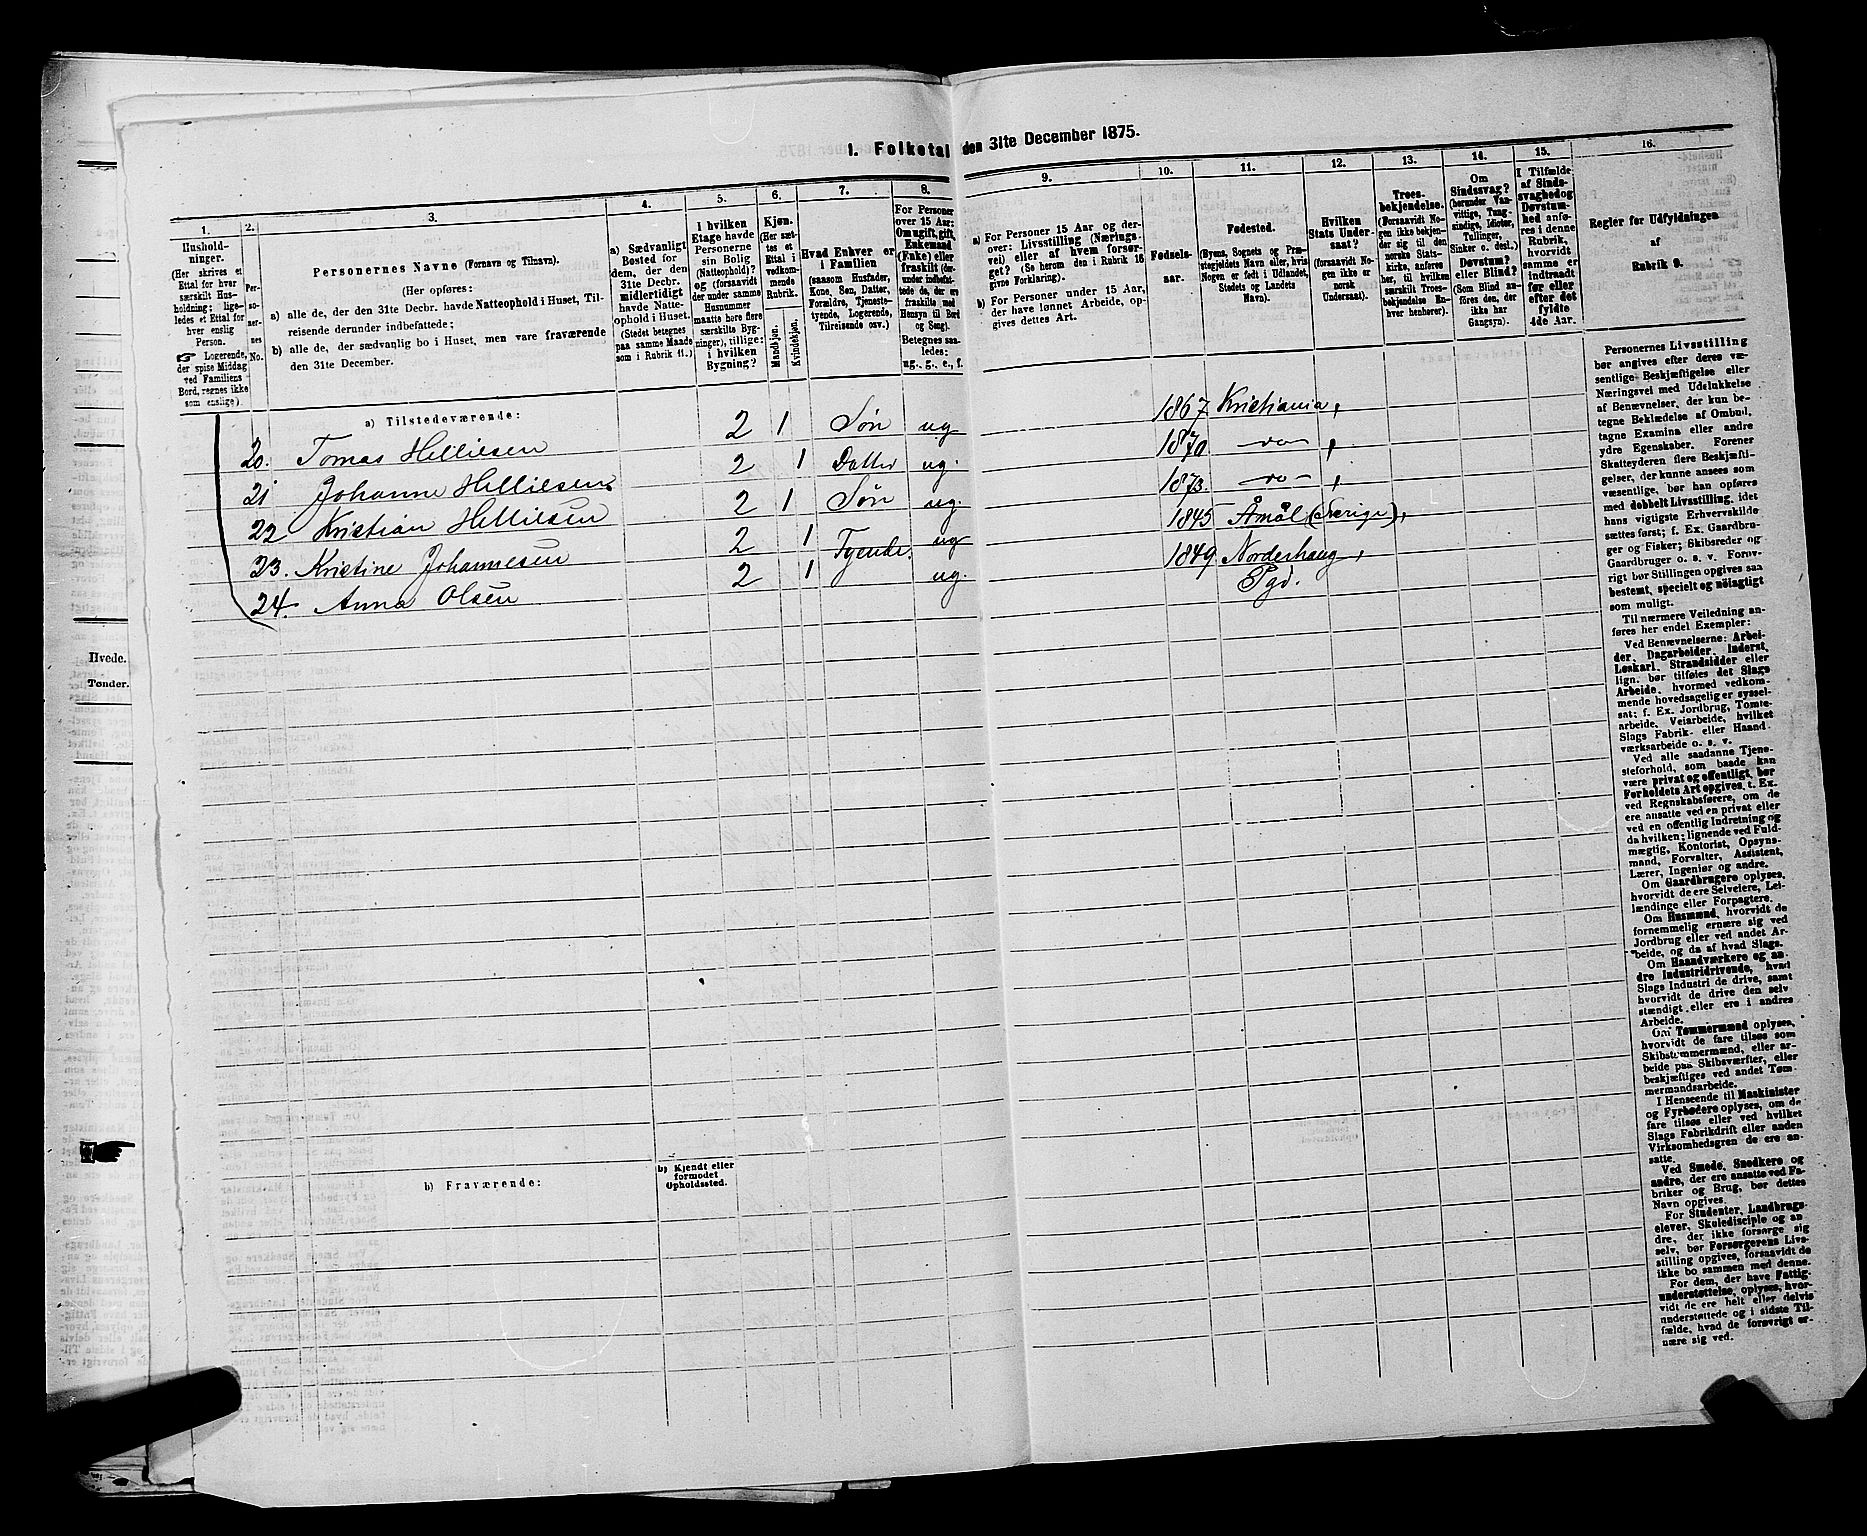 1. Folketal den 31te December 1875.
1. 2. 3. 4. 5. 6. 7. 8. 9. 10. 11. 12. 13. 14. 15. 16.
Hushold-
ninger.
(Her skrives et
Ettal for hver
særskilt Hus-
holdning; lige-
ledes et Ettal for
hver enslig
Person.
Logerende,
der spise Middag
ved Familiens
Bord, regnes ikke
som enslige).
Per-
so-
ner-
nes
No.
Personernes Navne (Fornavn og Tilnavn).
(Her opføres:
a) alle de, der den 31te Decbr. havde Natteophold i Huset, Til-
reisende derunder indbefattede;
b) alle de, der sædvanlig bo i Huset, men vare fraværende
den 31te December.
a) Sædvanligt
Bosted for
dem, der den
31te Decbr.
midlertidigt
havde Natte-
ophold i Huset.
(Stedet betegnes
paa samme Maade
som i Rubrik 11.)
I hvilken
Etage havde
Personerne
sin Bolig
(Natteophold)?
og (forsaavidt
der under samme
Husnummer
maatte høre flere
særskilte Byg-
ninger), tillige:
i hvilken
Bygning?
Kjøn.
(Her sæt-
tes et
Ettal i
vedkom-
mende
Rubrik.
Mandkjøn.
Kvindekjøn.
Hvad Enhver er
i Familien
(saasom Husfader,
Kone, Søn, Datter,
Forældre, Tjeneste-
tyende, Logerende,
Tilreisende osv.)
For Personer
over 15 Aar:
Om ugift, gift,
Enkemand
(Enke) eller
fraskilt (der-
under indbefat-
tede de, der ere
fraskilte med
Hensyn til Bord
og Seng).
Betegnes saa-
ledes:
ug., g., e., f.
a) For Personer 15 Aar og der-
over: Livsstilling (Nærings-
vei) eller af hvem forsør-
get? (Se herom den i Rubrik 16
givne Forklaring).
b) For Personer under 15 Aar,
der have lønnet Arbeide, op-
gives dettes Art.
Fødsels-
aar.
Fødested.
(Byens, Sognets og Præ-
stegjeldets Navn eller, hvis
Nogen er født i Udlandet,
Stedets og Landets
Navn).
Hvilken
Stats Under-
saat?
(forsaavidt No-
gen ikke er
norsk
Undersaat).
Troes-
bekjendelse.
(Forsaavidt No-
gen ikke bekjen-
der sig til den
norske Stats-
kirke, anføres
her, til hvilken
særskilt Troes-
bekjendelse En-
hver henhører).
Om
Sindssvag?
(herunder Van-
vittige, Tung-
sindige, Idioter,
Tullinger,
Sinker o. desl.)
Døvstum?
eller Blind?
(Som Blind an-
føres den, der
ikke har
Gangsyn).
I Tilfælde
af Sinds-
svaghed og
Døvstum-
hed anfø-
res i denne
Rubrik,
hvorvidt
samme er
indtraadt
før eller
efter det
fyldte
4de Aar.
Regler for Udfyldningen
af
Rubrik 9.
a) Tilstedeværende:
20. Tomas Hellilsen 2 1 Søn ug 1867 Kristiania,
21 Johanne Hellilsen 2 1 Datter ug. 1870 — do — ,
22 Kristian Hellilsen 2 1 Søn ug. 1873. — do — ,
23. Kristine Johannesen 2 1 Tyende. ug 1845 Åmål (Sverige),
24. Anna Olsen 2 1 ug. 1849 Norderhaug,
Pgd.
b) Fraværende:
b) Kjendt eller
formodet
Opholdssted.
Personernes Livsstilling
bør angives efter deres væ-
sentlige Beskjæftigelse eller
Næringsvei med Udelukkelse
af Benævnelser, der kun be-
tegne Beklædelse af Ombud,
tagne Examina eller andre
ydre Egenskaber. Forener
Skatteyderen flere Beskjæfti-
gelser, der kunne ansees som
væsentlige, bør han opføres
med dobbelt Livsstilling, idet
hans vigtigste Erhvervskilde
sættes først; f. Ex. Gaardbru-
ger og Fisker; Skibsreder og
Gaardbruger o. s. v. Forøv-
rigt bør Stillingen opgives saa
bestemt, specielt og nøiagtigt
som muligt.
Til nærmere Veiledning an-
føres her endel Exempler:
Ved Benævnelserne: Arbei-
der, Dagarbeider, Inderst,
Løskarl, Strandsidder eller
lign. bør tilføies det Slags
Arbeide, hvormed vedkom-
mende hovedsagelig er syssel-
sat; f. Ex. Jordbrug, Tomte-
arbeide, Veiarbeide, hvilket
Slags Fabrik- eller Haand-
værksarbeide o. s. v.
Ved alle saadanne Tjene-
steforhold, som baade kan
være privat og offentligt, bør
Forholdets Art opgives, t. Ex.
ved Regnskabsførere, om de
ere ansatte ved en privat eller
ved en offentlig Indretning og
da hvilken; lignende ved Fuld-
mægtig, Kontorist, Opsyns-
mand, Forvalter, Assistent,
Lærer, Ingeniør og andre.
Om Gaardbrugere oplyses,
hvorvidt de ere Selveiere, Lei-
lændinge eller Forpagtere.
Om Husmænd, hvorvidt de
fornemmelig ernære sig ved
Jordbrug eller ved andet Ar-
beide, og da af hvad Slags.
Om Haandværkere og an-
dre Industridrivende, hvad
Slags Industri de drive, samt
hvorvidt de drive den selv-
stændigt eller ere i andres
Arbeide.
Om Tømmermænd oplyses,
hvorvidt de fare tilsøs som
Skibstømmermænd, eller ar-
beide paa Skibsværfter, eller
beskjæftiges ved andet Tøm-
mermandsarbeide.
I Henseende til Maskinister
og Fyrbødere oplyses, om de
fare tilsøs eller ved hvilket
Slags Fabrikdrift eller anden
Virksomhedsgren de ere an-
satte.
Ved Smede, Snedkere og
andre, der ere ansatte ved Fa-
briker og Brug, bør dettes
Navn opgives.
For Studenter, Landbrugs-
elever, Skoledisciple og an-
dre, der ikke forsørge sig
selv, bør Forsørgerens Livs-
stilling opgives, forsaavidt de
ikke bo sammen med denne.
For dem, der have Fattig-
understøttelse, oplyses, hvor-
vidt de ere helt eller delvis
understøttede og i sidste Til-
fælde, hvad de forøvrigt er-
nære sig ved.
Hvede.
Tønder.